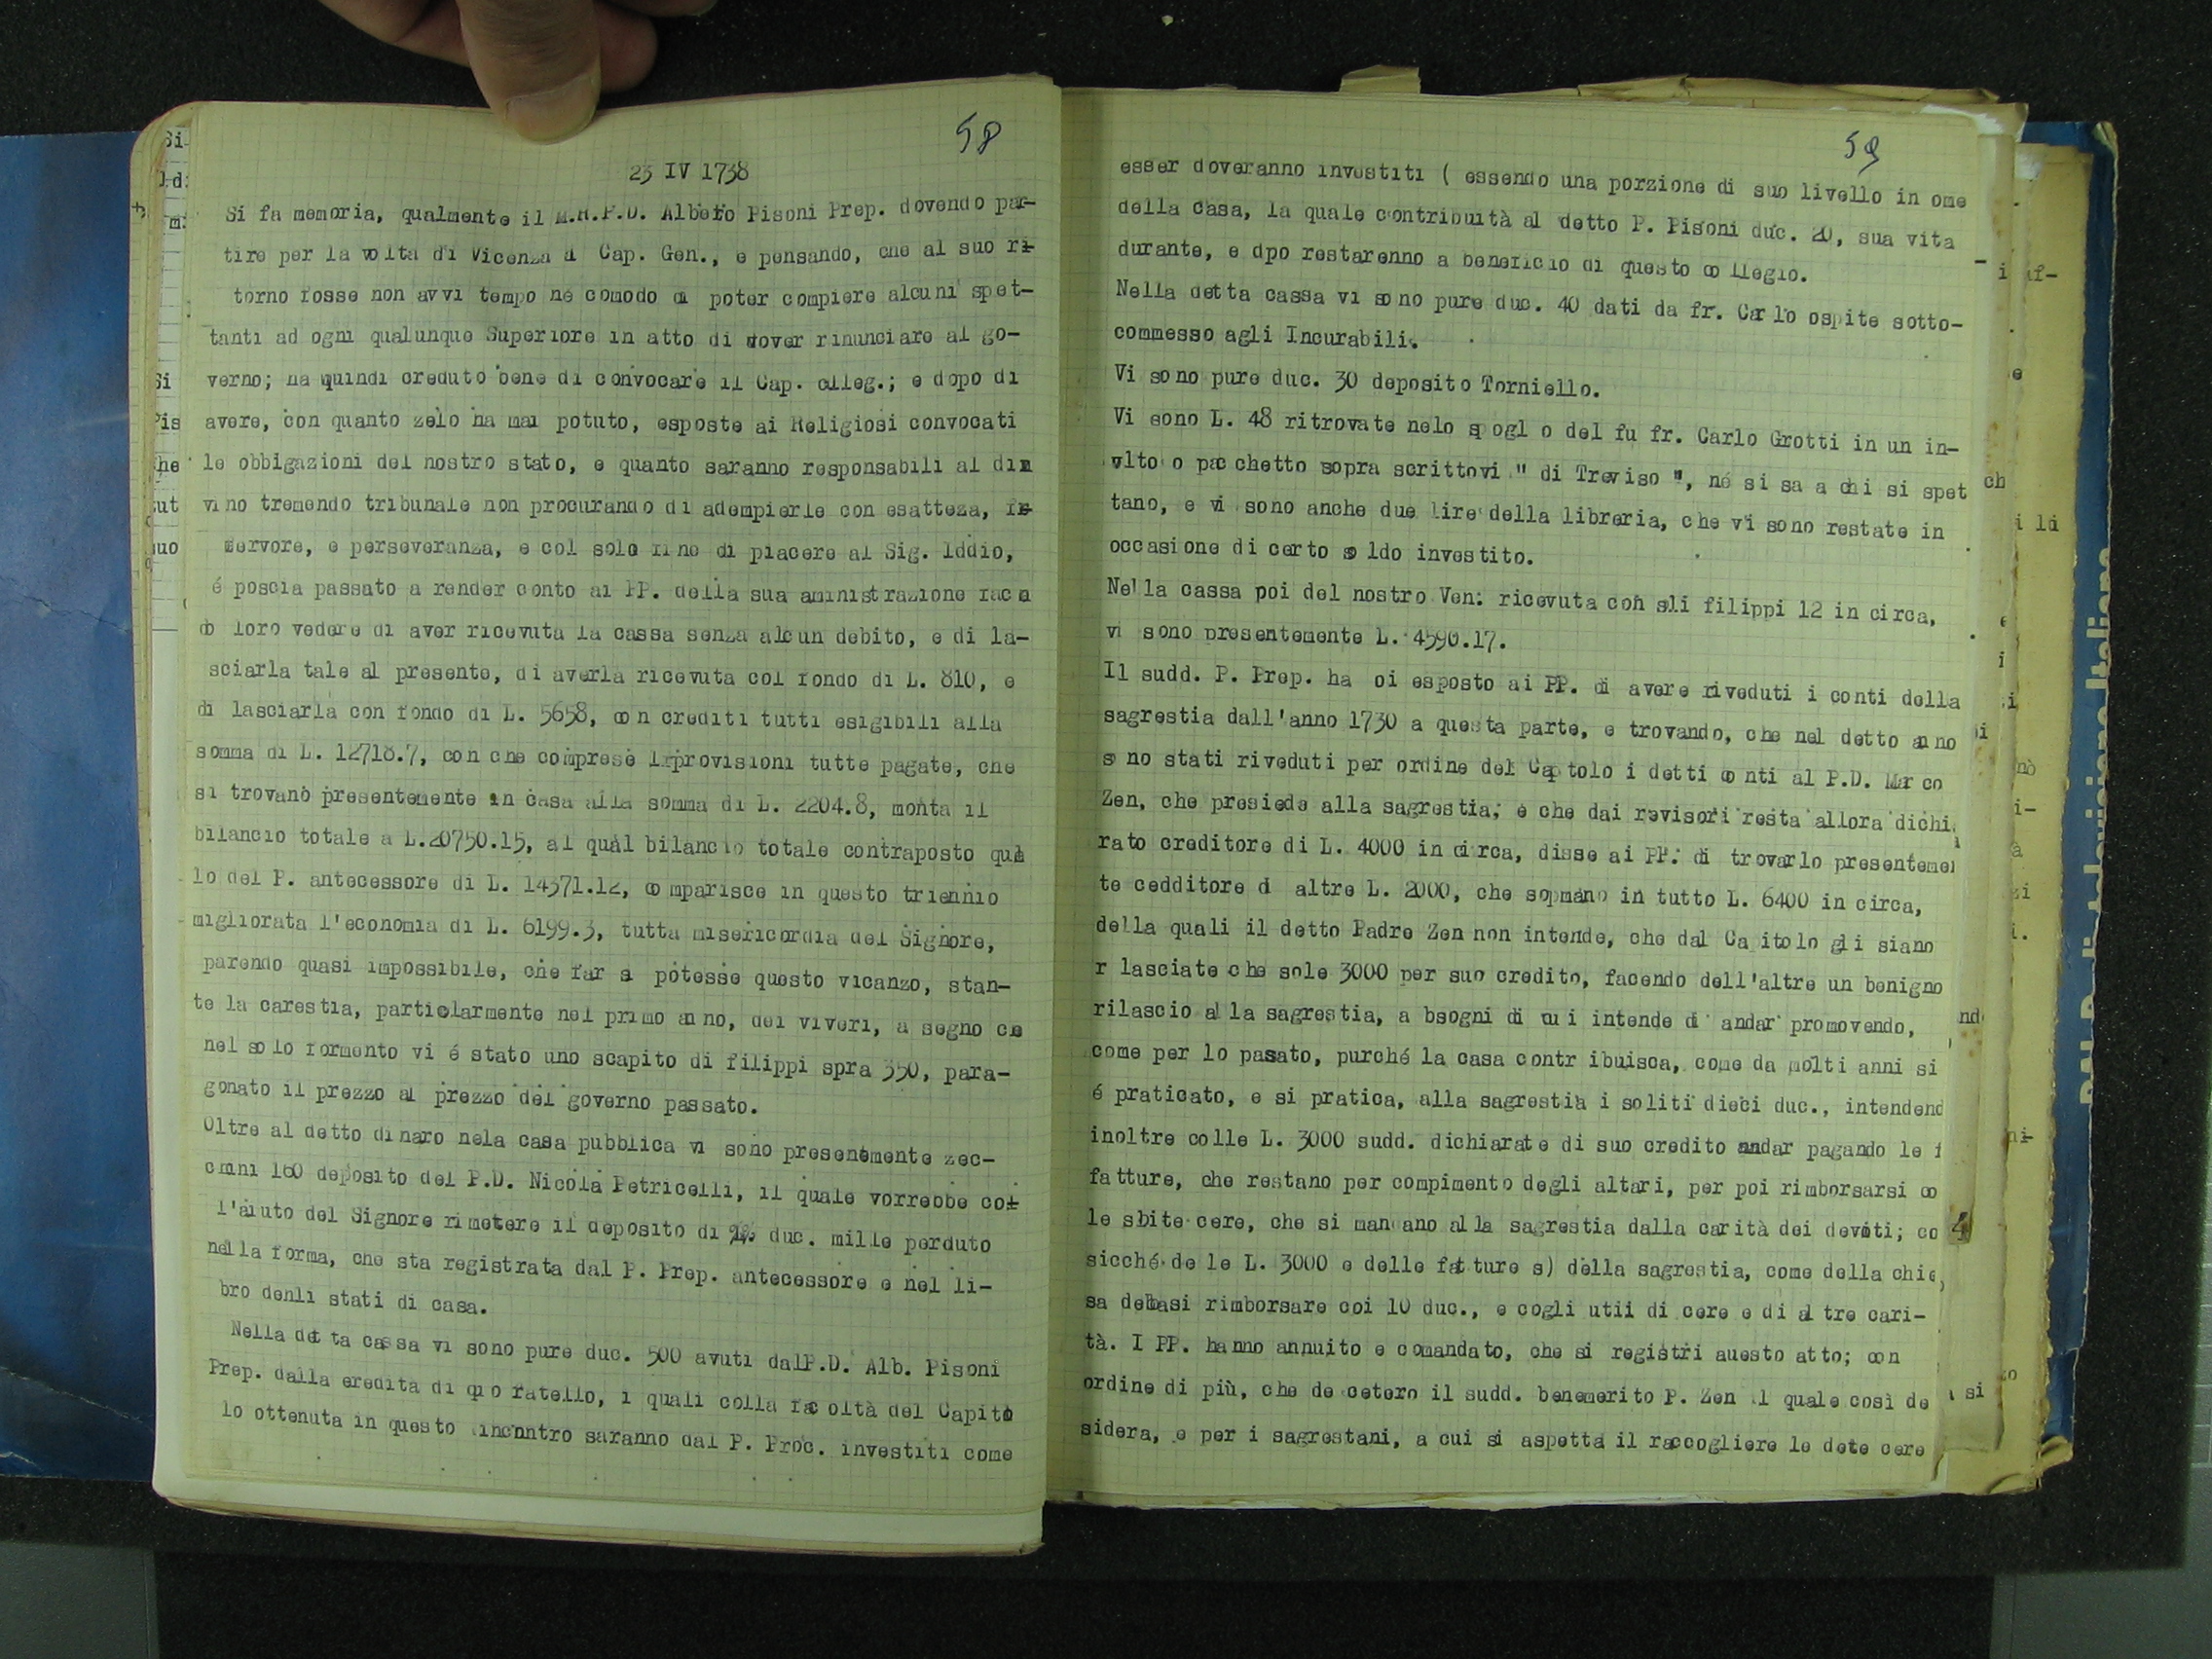 58
23 IV 1738
Si fa memoria, qualmente il M.R.P.D. Albeto Pisoni Prep. dovendo par-
tire per la volta di Vicenza a Cap. Gen., e pensando, che al suo ri-
torno fosse non avvi tempo né comodo di poter compiere alcuni spet-
tanti ad ogni qualunque Superiore in atto di dover rinunciare al go-
verno; ha quindi creduto bene di convocare il Cap. colleg.; e dopo di
avere, con quanto zelo ha mai potuto, esposte ai Religiosi convocati
le obbigazioni del nostro stato, e quanto saranno responsabili al di
vino tremendo tribunale non procurando di adempierle con esatteza,
fervore, e perseveranza, e col solo fine di piacere al Sig. Iddio,
é poscia passato a render conto ai PP. della sua aministrazione face
do loro vedere di aver ricevuta la cassa senza alcun debito, e di la-
sciarla tale al presente, di averla ricevuta col fondo di L. 810, e
di lasciarla con fondo di L. 5658, con crediti tutti esigibili alla
somma di L. 12718.7, con che comprese provisioni tutte pagate, che
si trovano presentemente in casa alla somma di L. 2204.8, monta il
bilancio totale a L.20750.15, al qual bilancio totale contraposto quel
lo del P. antecessore di L. 14371.12, comparisce in questo triennio
migliorata l'economia di L. 6199.3, tutta misericordia del Signore,
parendo quasi impossibile, che far si potesse questo vicanzo, stan-
te la carestia, particlarmente nel primo anno, dei viveri, a segno che
nel solo formento vi é stato uno scapito di filippi spra 350, para-
gonato il prezzo al prezzo del governo passato.
Oltre al detto dinaro nela casa pubblica vi sono presentemente zec-
chini 160 deposito del P.D. Nicola Petricelli, il quale vorrebbe col
l'aiuto del Signore rimetere il deposito di duc. mille perduto
nella forma, che sta registrata dal P. Prep. antecessore e nel li-
bro denli stati di casa.
Nella detta cassa vi sono pure duc. 500 avuti dalP.D. Alb. Pisoni
Prep. dalla eredita di quo fatello, i quali colla facoltà del Capito
lo ottenuta in questo incontro saranno dal P. Proc. investiti come
59
esser doveranno investiti ( essendo una porzione di suo livello in ome
della Casa, la quale contribuità al detto P. Pisoni duc. 20, sua vita
durante, e dpo restarenno a beneficio di questo collegio.
Nella detta cassa vi sono pure duc. 40 dati da fr. Carlo ospite sotto-
commesso agli Incurabili.
Vi sono pure duc. 30 deposito Torniello.
Vi sono L. 48 ritrovate nelo spogl o del fu fr. Carlo Grotti in un in-
vlto o pacchetto sopra scrittovi " di Treviso ", né si sa a chi si spet
tano, e vi sono anche due lire della libreria, che vi sono restate in
occasione di certo soldo investito.
Nella cassa poi del nostro Ven. ricevuta con sli filippi 12 in circa,
vi sono presentemente L. 4590.17.
Il sudd. P. Prep. ha oi esposto ai PP. di avere riveduti i conti della
sagrestia dall'anno 1730 a questa parte, e trovando, che nel detto anno
sono stati riveduti per ordine del Captolo i detti conti al P.D. Marco
Zen, che presiede alla sagrestia; e che dai revisori resta allora dichi
rato creditore di L. 4000 in circa, disse ai PP. di trovarlo presentemen
te cedditore d altre L. 2000, che sopmano in tutto L. 6400 in circa,
della quali il detto Padre Zen non intende, che dal Ca itolo gli siano
r lasciate che sole 3000 per suo credito, facendo dell'altre un benigno
rilascio alla sagrestia, a bsogni di cui intende di andar promovendo,
come per lo passato, purché la casa contr ibuisca, come da molti anni si
é praticato, e si pratica, alla sagrestia i soliti dieci duc., intendend
inoltre colle L. 3000 sudd. dichiarate di suo credito andar pagando le f
fatture, che restano per compimento degli altari, per poi rimborsarsi co
le sbite cere, che si mandano alla sagrestia dalla carità dei devoti; co
sicché de le L. 3000 e delle fatture s) della sagrestia, come della chie
sa debbasi rimborsare coi 10 duc., e cogli utii di cere e di altre cari-
tà. I PP. hanno annuito e comandato, che si registri auesto atto; con
ordine di più, che de cetero il sudd. benemerito P. Zen il quale così de
sidera, e per i sagrestani, a cui si aspetta il raccogliere le dete cere